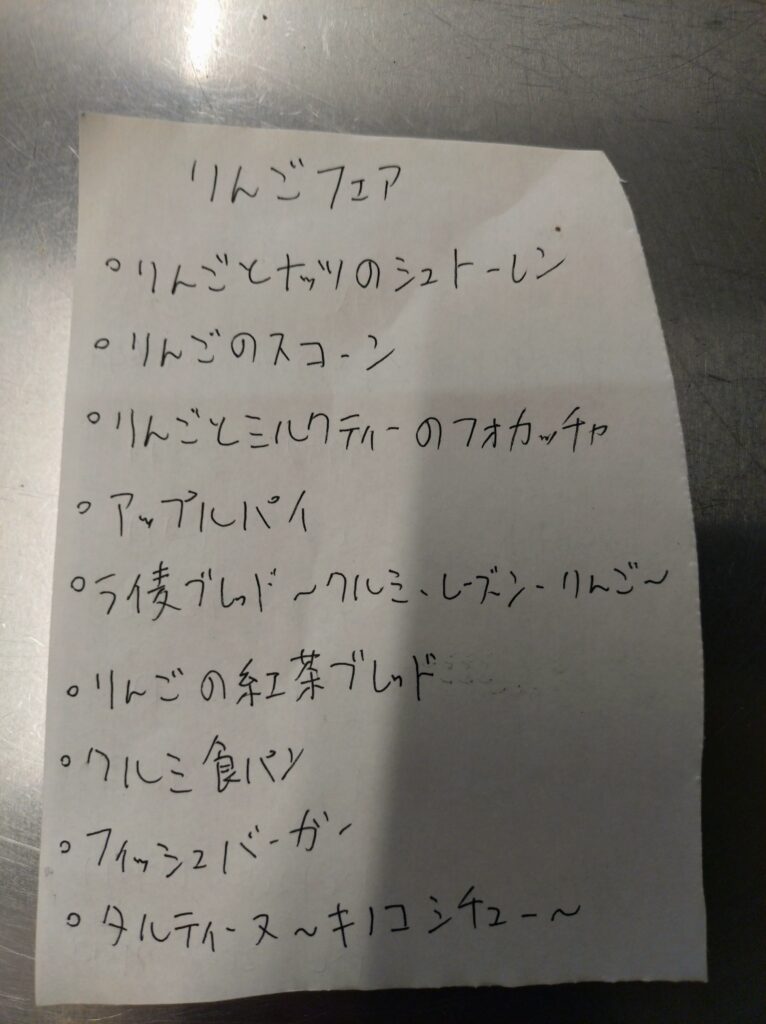 りんごフェア
°りんごとナッツのシュトーレン
°りんごのスコーン
°りんごとミルクティーのフォカッチャ
°アップルパイ
°ライ麦ブレッド〜クルミ、レーズン、りんご〜
°りんごの紅茶ブレッド
°クルミ食パン
°フィッシュバーガー
°タルティーヌ〜キノコシチュー〜